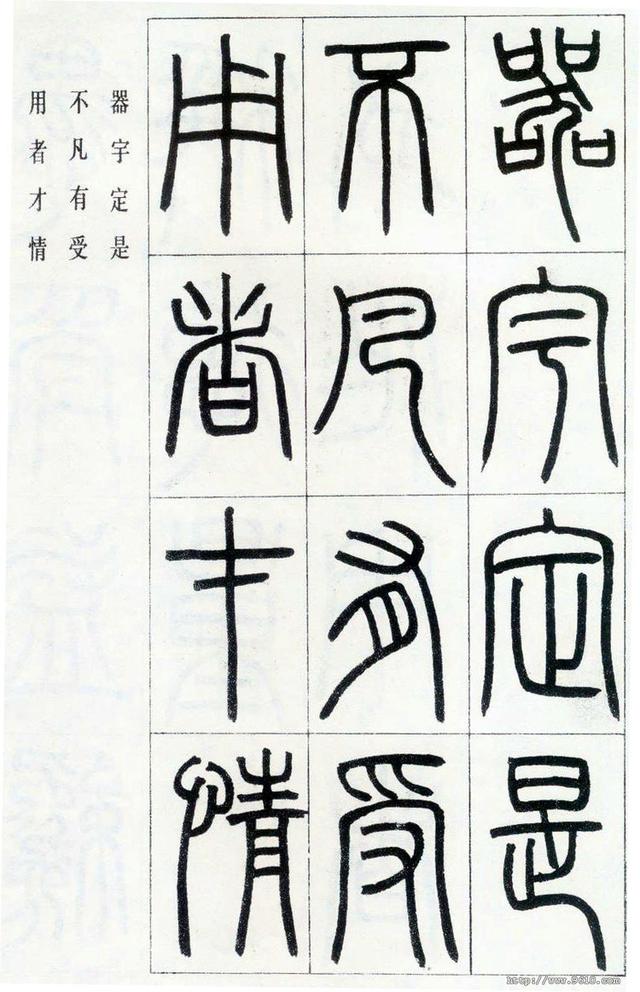 器宇定是
不凡有受
用者才情
器宇定是
不凡有受
用者才情
http://www.9610.com